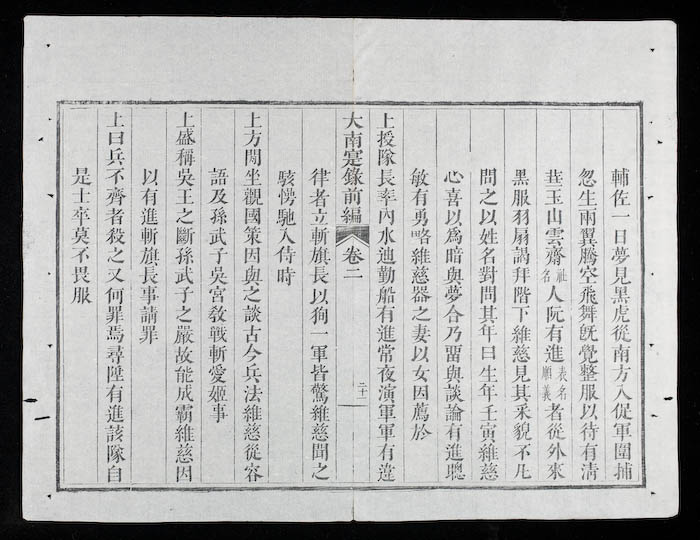 輔佐一日夢見黑虎從南方入促軍圍捕
忽生兩翼騰空飛舞旣覺整服以待有淸
韮玉山雲齋社名人阮有進表名順義者從外來
黑服羽扇謁拜階下維慈見其采貌不凡
問之以姓名對問其年曰生年壬寅維慈
心喜以爲暗與夢合乃畱與談論有進聰
敏有勇略維慈器之妻以女因薦於
上授隊長率內水廸勤船有進常夜演軍軍有違
大南寔錄前編 卷二 二十一
律者立斬旗長以狥一軍皆驚維慈聞之
駭愕馳入侍時
上方閒坐觀國策因與之談古今兵法維慈從容
語及孫武子吳宮敎戰斬愛姬事
上盛稱吳王之斷孫武子之嚴故能成霸維慈因
以有進斬旗長事請罪
上曰兵不齊者殺之又何罪焉尋陞有進該隊自
是士卒莫不畏服